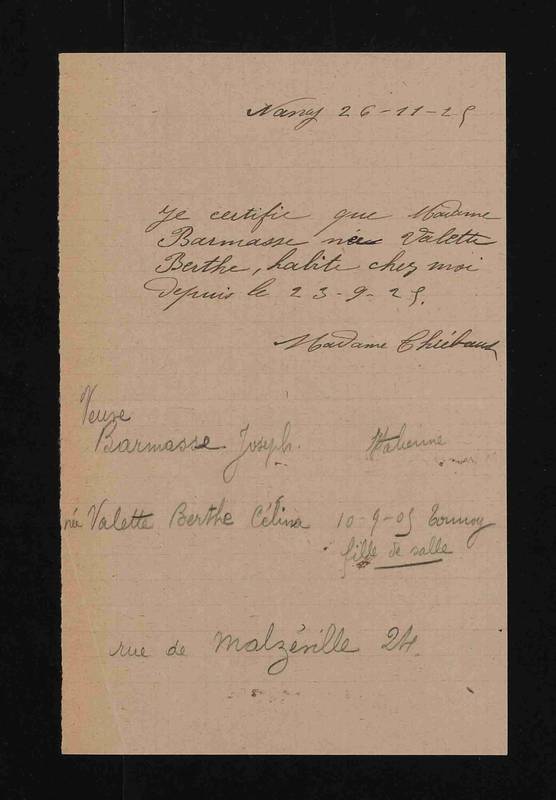 Nancy 26-11-25
Je certifie que Madame
Barmasse née Valette
Berthe, habite chez moi
depuis le 23-9-25.
Madame Thiébaud
Veuve
Barmasse Joseph. Italienne
née Valette Berthe Célina 10-9-05
fille de salle
rue de Malzéville 24